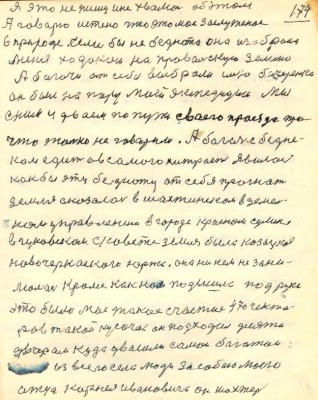 177
Я это не пишу и не хвалюсь об этом
Я говорю истено что это мое заслуженое
в природе. Если бы не беднота она избрала
меня ходоком на провальскую землю
А богачи от себя выбрали
он был на пару моей экспедиции мы
с ним и двоем по пути своего проезда про
что только не говорили. А богач с бедня-
ком едит от самого
как бы эту бедноту от себя прогнат
земля оказалас в шахтинском в земе-
ном управлении в городе красном сулине
в гуковском с/совете земля была козацкая
новочеркаского юрта. она ни кем не зани-
малас Кроме как
это было мое такое счастие 170 гекта-
ров такой кусочек он подходил десяти
дворам куда двалили самой богатой
из всего села люди За собою моего
отца Корнея ивановича он шахтер